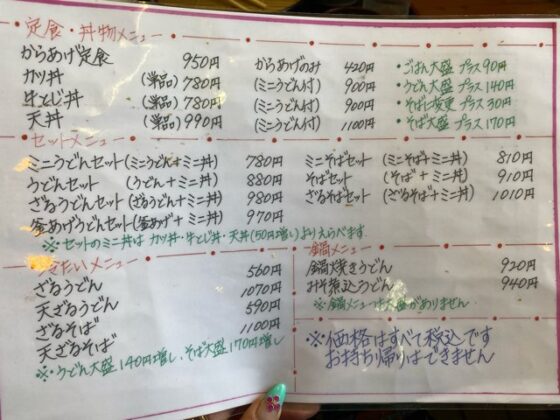 定食・丼物メニュー
からあげ定食 950円 からあげのみ 420円 ・ごはん大盛 プラス90円
カツ丼 (単品)780円 (ミニうどん付) 900円 ・うどん大盛 プラス140円
牛とじ丼 (単品)780円 (ミニうどん付) 900円 ・そばに変更 プラス30円
天丼 (単品)990円 (ミニうどん付) 1100円 ・そば大盛 プラス170円
セットメニュー
ミニうどんセット(ミニうどん+ミニ丼) 780円 ミニそばセット (ミニそば+ミニ丼) 810円
うどんセット (うどん+ミニ丼) 880円 そばセット (そば+ミニ丼) 910円
ざるうどんセット(ざるうどん+ミニ丼) 980円 ざるそばセット (ざるそば+ミニ丼) 1010円
釜あげうどんセット(釜あげ+ミニ丼) 970円
※セットのミニ丼は カツ丼・牛とじ丼・天丼(50円増し)よりえらべます
たいメニュー
ざるうどん 560円
天ざるうどん 1070円
ざるそば 590円
天ざるそば 1100円
※うどん大盛140円増し、そば大盛170円増し
鍋メニュー
鍋焼きうどん 920円
みそ煮込うどん 940円
※鍋メニューは大盛がありません
※価格はすべて税込です
お持ち帰りはできません